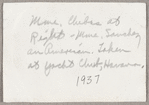 Mme. Cuba at
Right - Mme. Sanchez
an American. Taken
at Yacht Club, Havana,
1937